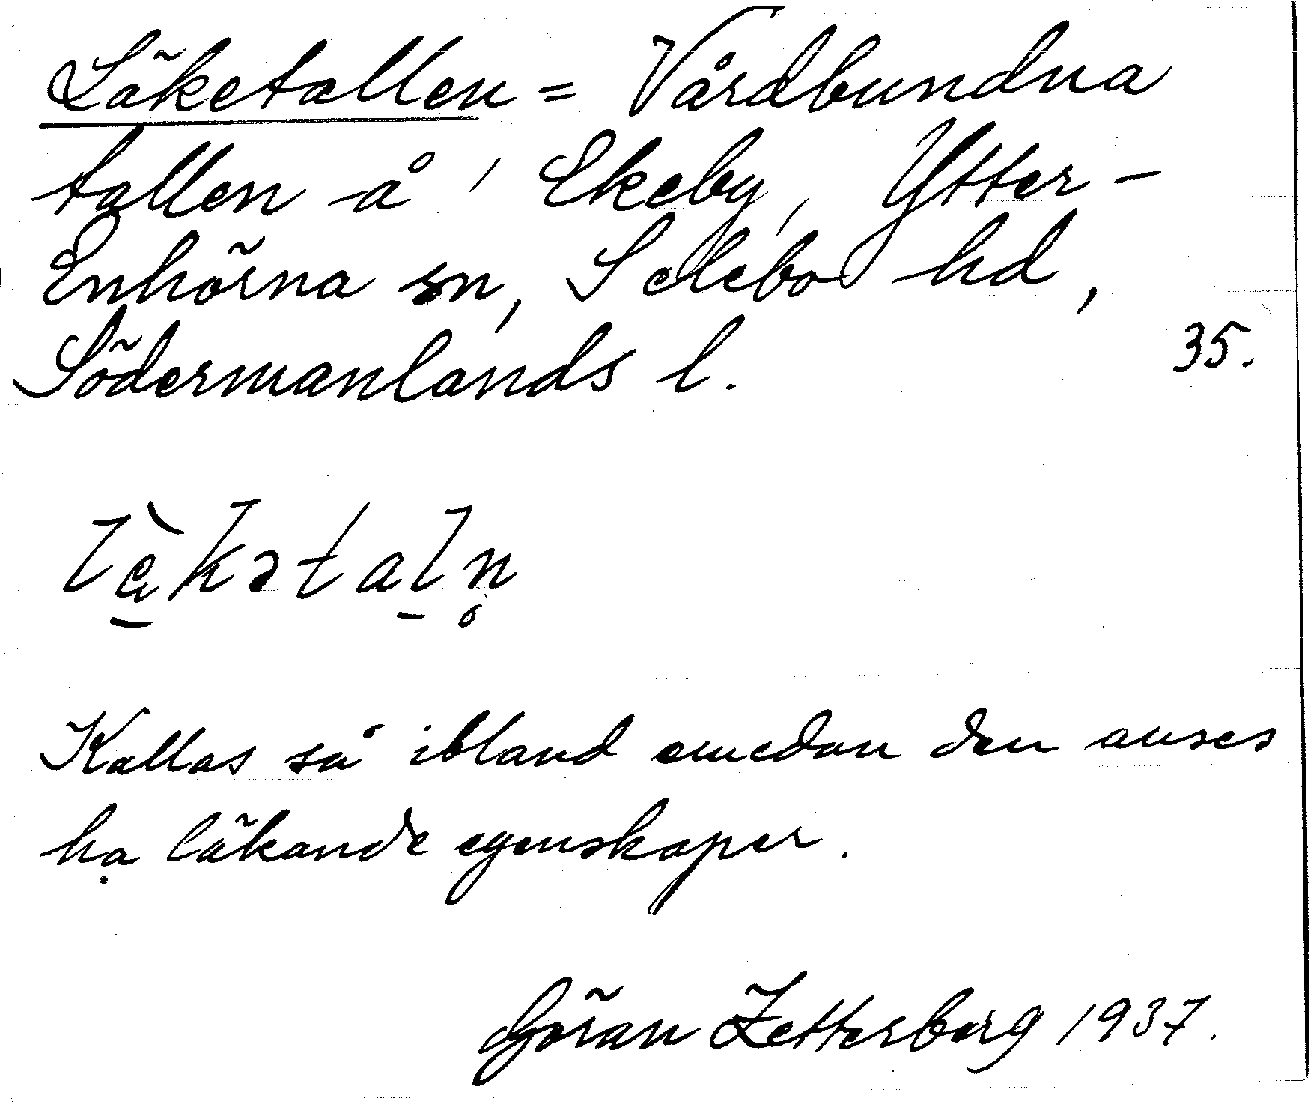 Läketallen = Vårdbundna
tallen å Ekeby, Ytter-
Enhörna sn, Selebo hd,
Södermanlands l.
35.
lὰkətaln̥
Kallas så ibland emedan den anses
ha läkande egenskaper.
Göran Zetterberg 1937.